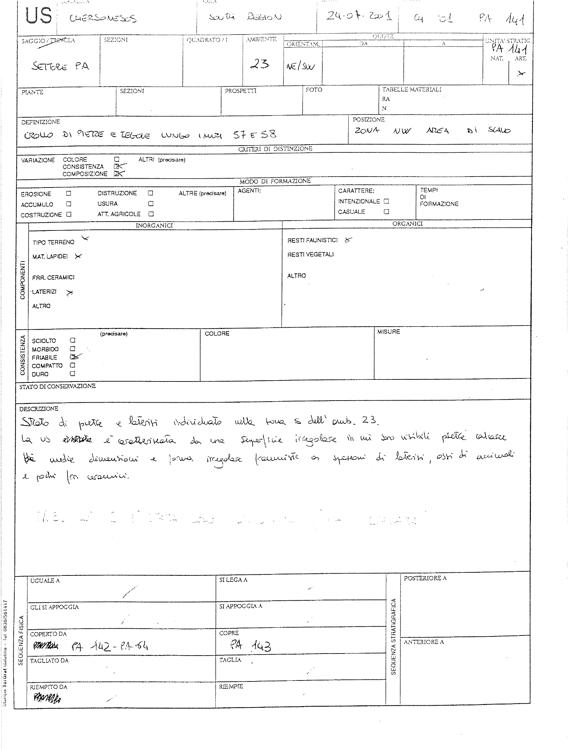 US CHERSONESOS SOUTH REGION 24-07-2001 CH '01 PA 141
SAGGIO/TRINCEA SEZIONI QUADRATO/I AMBIENTE QUOTE UNITA' STRATIG.
ORIENTAM. DA A PA 141
SETTORE PA 23 NE/SW NAT. ART.
PIANTE SEZIONI PROSPETTI FOTO TABELLE MATERIALI
RA
N
DEFINIZIONE POSIZIONE
CROLLO DI PIETRE E TEGOLE LUNGO I MURI 57 E 58 ZONA NW AREA DI SCALO
CRITERI DI DISTINZIONE
VARIAZIONE COLORE ALTRI (precisare)
CONSISTENZA
COMPOSIZIONE
MODO DI FORMAZIONE
EROSIONE DISTRUZIONE ALTRE (precisare) AGENTI: CARATTERE: TEMPI
ACCUMULO USURA INTENZIONALE DI
COSTRUZIONE ATT. AGRICOLE CASUALE FORMAZIONE
INORGANICI ORGANICI
COMPONENTI
TIPO TERRENO RESTI FAUNISTICI
MAT. LAPIDEI RESTI VEGETALI
FRR. CERAMICI ALTRO
LATERIZI
ALTRO
CONSISTENZA
(precisare) COLORE MISURE
SCIOLTO
MORBIDO
FRIABILE
COMPATTO
DURO
STATO DI CONSERVAZIONE
DESCRIZIONE
Strato di pietre e laterizi individuato nella zona S dell'amb. 23.
La US è caratterizzata da una superficie irregolare in cui sono visibili pietre calcaree
di medie dimensioni e forma irregolare frammiste a spezzoni di laterizi, ossi di animali
e pochi frr ceramici.
SEQUENZA FISICA
UGUALE A SI LEGA A
GLI SI APPOGGIA SI APPOGGIA A
COPERTO DA COPRE
PA 142 - PA 64 PA 143
TAGLIATO DA TAGLIA
RIEMPITO DA RIEMPIE
SEQUENZA STRATIGRAFICA
POSTERIORE A
ANTERIORE A